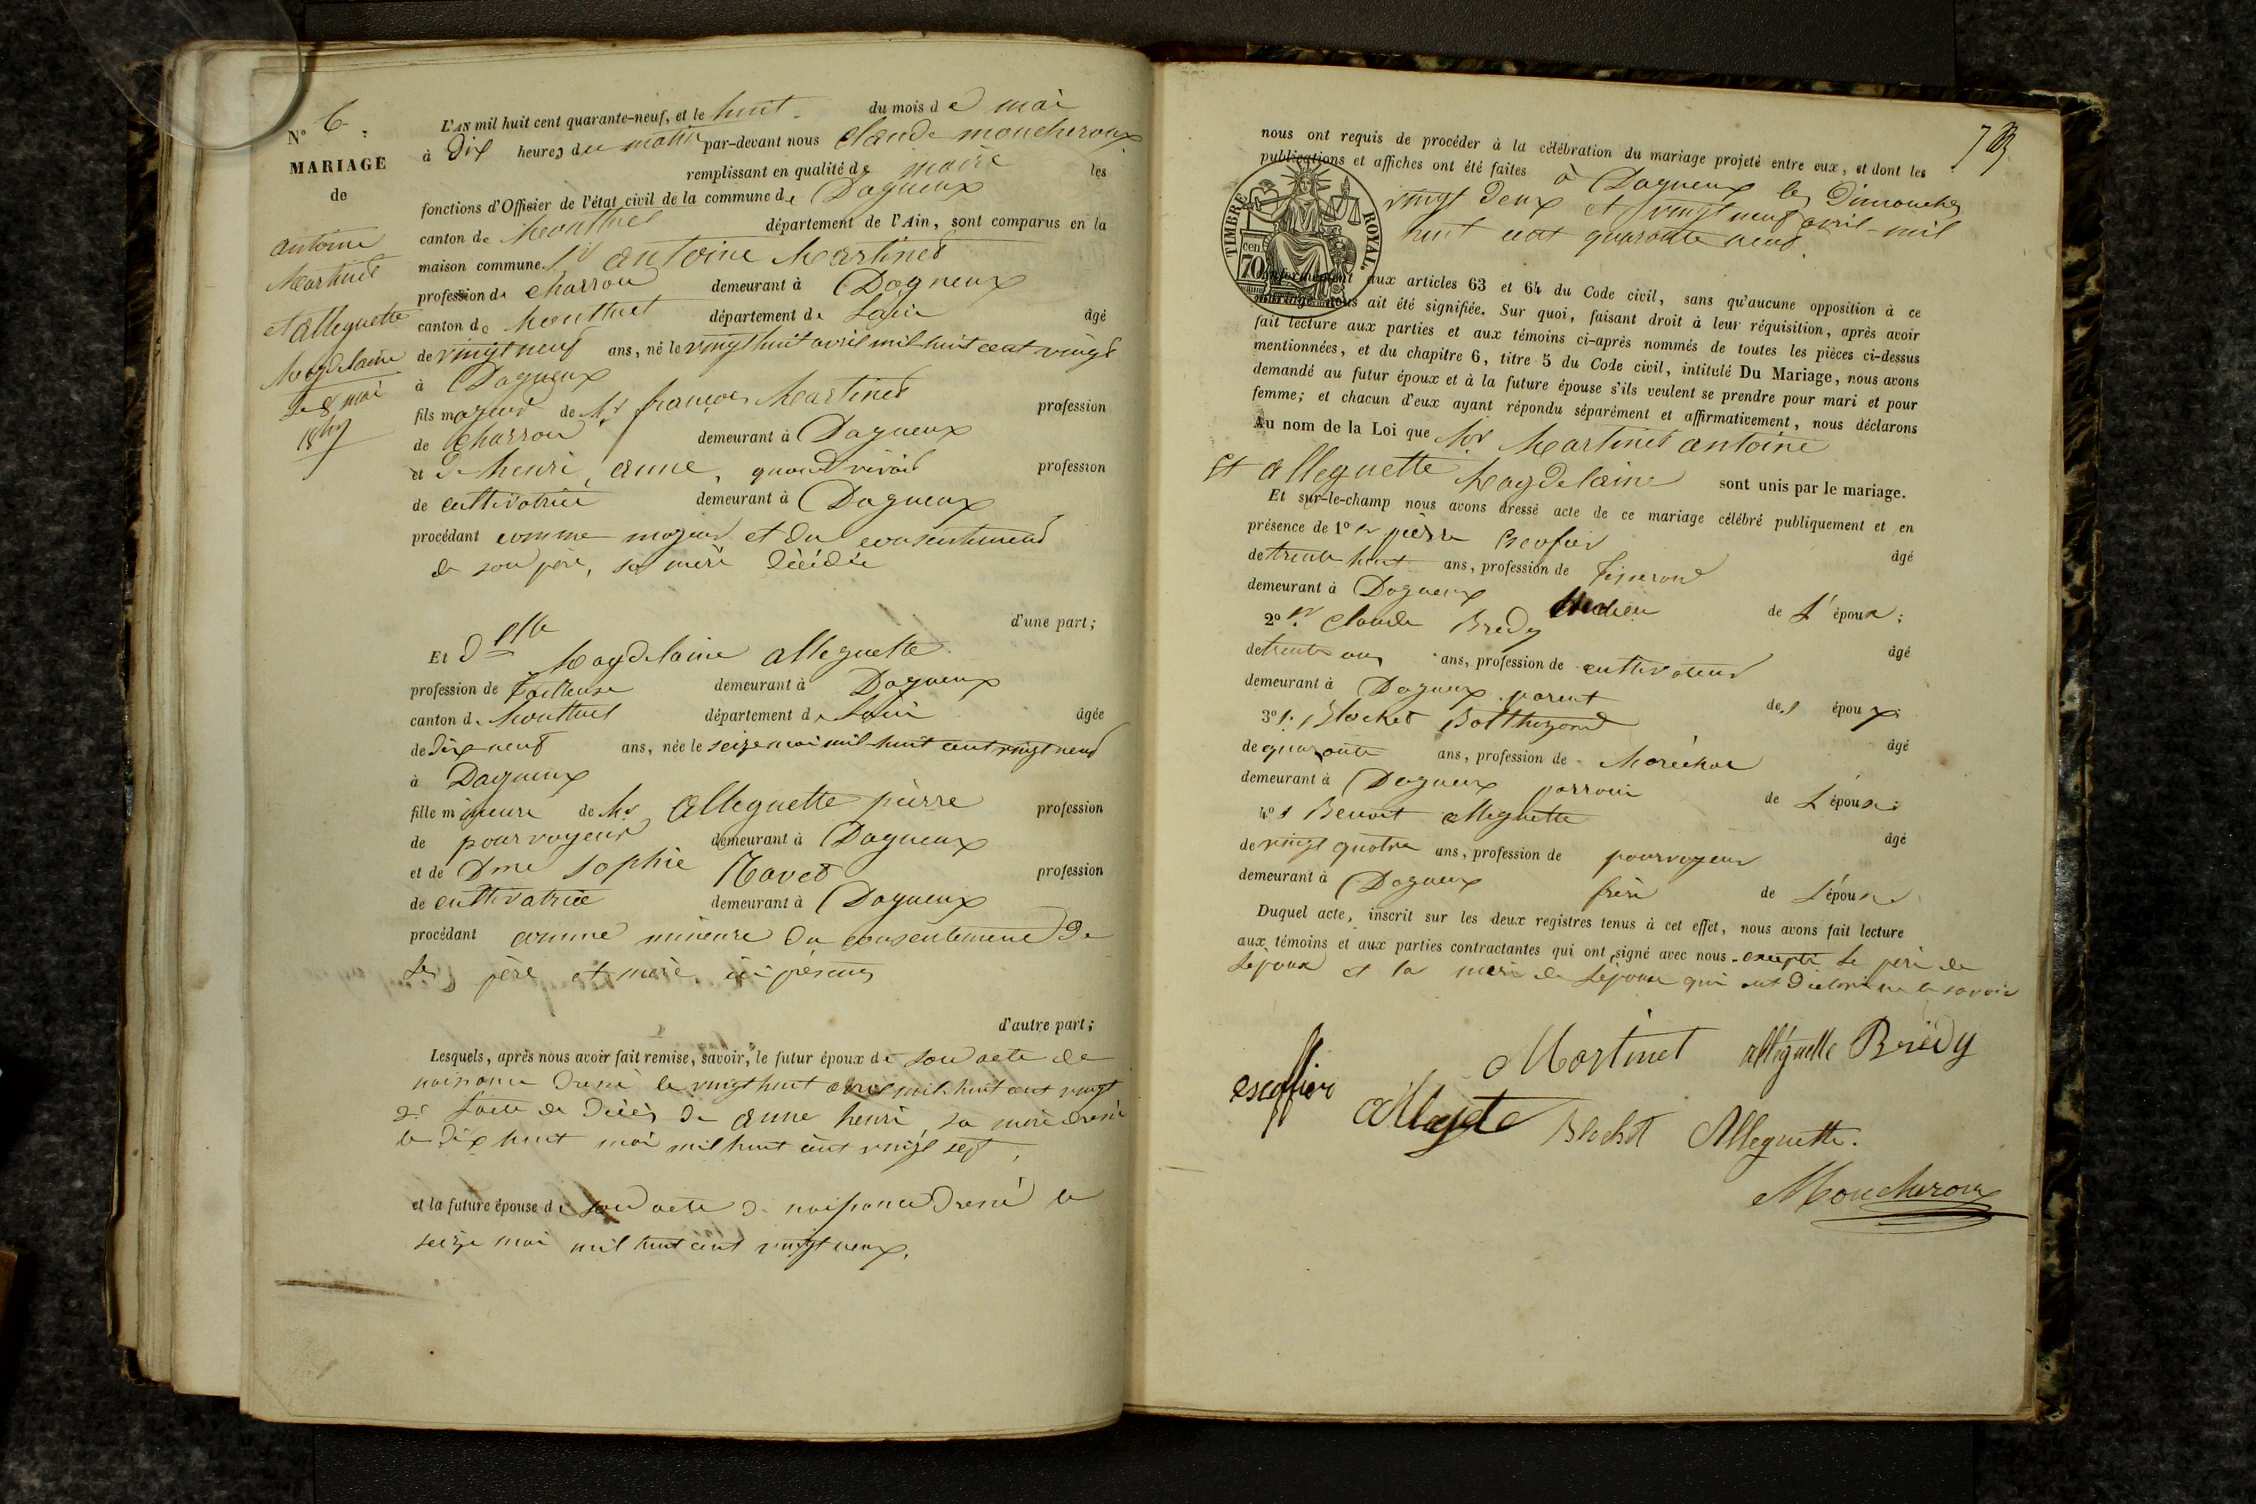 N° 6.
MARIAGE
de
antoine
Martinet
et alleguette
Magdelaine
Le 8 mai
1849
L'AN mil huit cent quarante-neuf, et le huit du mois de mai
à Dix heures du matin par-devant nous Claude moucheroux
remplissant en qualité de maire les
fonctions d'Officier de l'état civil de la commune de Dagneux
canton de Montluel département de l'Ain, sont comparus en la
maison commune. Sr antoine Martinet
profession de charron demeurant à Dagneux
canton de Montluel département de Lain âgé
de vingt neuf ans, né le vingt huit avril mil huit cent vingt
à Dagneux
fils majeur de Mr françois Martinet profession
de Charron demeurant à Dagneux
et de henri, anne, quand vivait profession
de cultivatrice demeurant à Dagneux
procédant comme majeur et du consentement
de son père, sa mère décédée
d'une part;
Et Delle Magdelaine alleguette
profession de Tailleuse demeurant à Dagneux
canton de Montluel département de Lain âgée
de Dix neuf ans, née le seize mai mil huit cent vingt neuf
à Dagneux
fille mineure de Mr alleguette pierre profession
de pourvoyeur demeurant à Dagneux
et de Dme Sophie Navet profession
de cultivatrice demeurant à Dagneux
procédant comme mineure du consentement de
ses père et mère ici présents
d'autre part;
Lesquels, après nous avoir fait remise, savoir, le futur époux de son acte de
naissance dressé le vingt huit avril mil huit cent vingt
2° Lacte de décès de anne henri, sa mère dressé
le dix huit mai mil huit cent vingt sept,
et la future épouse de son acte de naissance dressé le
seize mai mil huit cent vingt neuf.
nous ont requis de procéder à la célébration du mariage projeté entre eux, et dont les
publications et affiches ont été faites à Dagneux les Dimanches
vingt deux et vingt neuf avril mil
huit cent quarante neuf
TIMBRE ROYAL.
70 cen
conformément aux articles 63 et 64 du Code civil, sans qu'aucune opposition à ce
mariage nous ait été signifiée. Sur quoi, faisant droit à leur réquisition, après avoir
fait lecture aux parties et aux témoins ci-après nommés de toutes les pièces ci-dessus
mentionnées, et du chapitre 6, titre 5 du Code civil, intitulé Du Mariage, nous avons
demandé au futur époux et à la future épouse s'ils veulent se prendre pour mari et pour
femme; et chacun d'eux ayant répondu séparément et affirmativement, nous déclarons
Au nom de la Loi que Mr Martinet antoine
et alleguette Magdelaine sont unis par le mariage.
Et sur-le-champ nous avons dressé acte de ce mariage célébré publiquement et en
présence de 1° Sr pierre Escofier âgé
de trente huit ans, profession de Tisserand
demeurant à Dagneux de L'époux;
2° Sr Claude Bredy âgé
de trente ans, profession de cultivateur
demeurant à Dagneux parent de l époux;
3° S. Blochet Balthazard âgé
de quarante ans, profession de Maréchal
demeurant à Dagneux parrain de L'épouse;
4° S Benoit alleguette âgé
de vingt quatre ans, profession de pourvoyeur
demeurant à Dagneux frère de L'épouse
Duquel acte, inscrit sur les deux registres tenus à cet effet, nous avons fait lecture
aux témoins et aux parties contractantes qui ont signé avec nous excepté le père de
Lépoux et la mère de Lépouse qui ont déclaré ne le savoir
Martinet alléguette Brédy
escoffier Blochet Alleguette.
Moucheroux